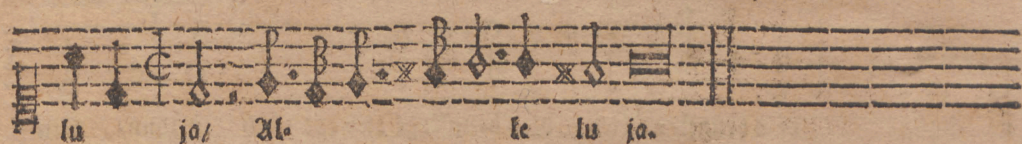 lu ja/ Al- le lu ja.